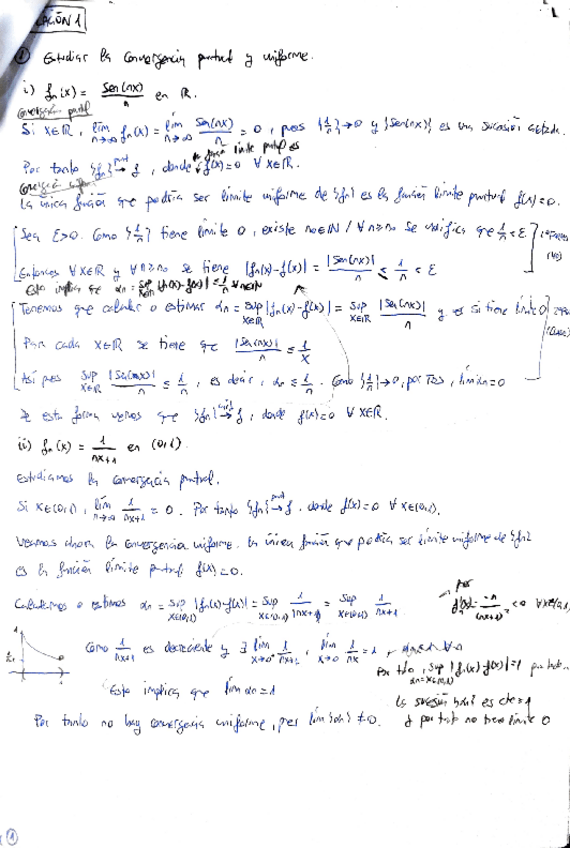 RELACIÓN 1
① Estudiar la convergencia puntual y uniforme.
i) fₙ(x) = sen(nx)/n en ℝ.
Convergencia puntual
Si x∈ℝ, lim n→∞ fₙ(x) = lim n→∞ sen(nx)/n = 0, pues {1/n}→0 y {sen(nx)} es una sucesión acotada.
la función límite puntual es
Por tanto {fₙ} → f, donde f(x)=0 ∀x∈ℝ.
Convergencia uniforme
La única función que podría ser límite uniforme de {fₙ} es la función límite puntual f(x)=0.
Sea ε>0. Como {1/n} tiene límite 0, existe n₀∈ℕ / ∀n≥n₀ se verifica que 1/n < ε.
Entonces ∀x∈ℝ y ∀n≥n₀ se tiene |fₙ(x)-f(x)| = |sen(nx)|/n ≤ 1/n < ε
Esto implica que αₙ = sup x∈ℝ |fₙ(x)-f(x)| ≤ 1/n ∀n∈ℕ
Tenemos que calcular o estimar αₙ = sup x∈ℝ |fₙ(x)-f(x)| = sup x∈ℝ |sen(nx)|/n y ver si tiene límite 0
Para cada x∈ℝ se tiene que |sen(nx)|/n ≤ 1/x
Así pues sup x∈ℝ |sen(nx)|/n ≤ 1/n, es decir, αₙ ≤ 1/n. Como {1/n}→0, por tanto, lim αₙ=0
De esta forma vemos que {fₙ} → f, donde f(x)=0 ∀x∈ℝ.
ii) fₙ(x) = 1/(nx+1) en (0,1).
Estudiamos la convergencia puntual.
Si x∈(0,1), lim n→∞ 1/(nx+1) = 0. Por tanto {fₙ} → f. donde f(x)=0 ∀x∈(0,1).
Veamos ahora la convergencia uniforme. La única función que podría ser límite uniforme de {fₙ}
es la función límite puntual f(x)=0.
Calculemos o estimemos αₙ = sup x∈(0,1) |fₙ(x)-f(x)| = sup x∈(0,1) 1/|nx+1| = sup x∈(0,1) 1/(nx+1)
pues
Como 1/(nx+1) es decreciente y ∃ lim x→0⁺
Por tanto, sup |fₙ(x)-f(x)|=1
Esto implica que lim αₙ=1
la sucesión {αₙ} es cte=1
y por tanto no tiene límite 0
Por tanto no hay convergencia uniforme, pues lim {αₙ} ≠0.
①